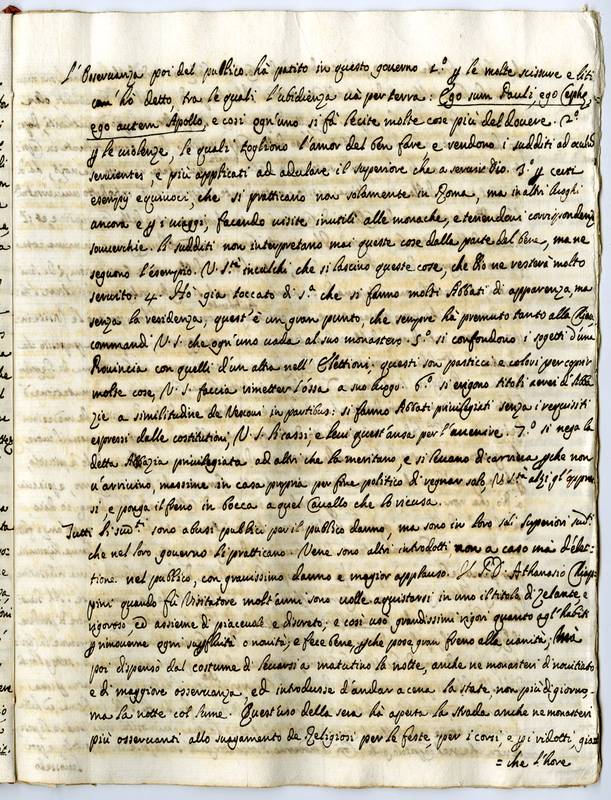 L'Osservanza poi del publico hà patito in questo governo 1.º p le molte scissure e liti
com' hò detto, tra le quali l'ubidienza và per terra: Ego sum Pauli, ego Cephe,
ego autem Apollo, e così ogn'uno si fà lecite molte cose più del dovere. 2.º
p le violenze, le quali togliono l'amor del ben fare e rendono i sudditi ad oculū
servientes, e più applicati ad adulare il superiore che a servire Dio. 3.º p certi
esempij equivoci, che si pratticano non solamente in Roma, ma in altri luoghi
ancora e p i viaggi, facendo visite inutili alle monache, e tenendovi corrispondenze
soverchie. Li sudditi non interpretano mai queste cose dalla parte del bene, ma ne
seguono l'esempio. V. S.tà inculchi che si lascino queste cose, che Dio ne resterà molto
servito: 4. Hò già toccato di s.ª che si fanno molti Abbati di apparenza, ma
senza la residenza, quest'è un gran punto, che sempre hà premuto tanto alla
commandi V. S. che ogn'uno vada al suo monastero. 5.º si confondono i sogetti d'una
Provincia con quelli d'un altra nell' Elettioni: questi son pasticci e colori per coprir
molte cose, V. S. faccia rimetter l'ossa a suo luogo. 6.º si erigono titoli aerei d'Abba
zie a similitudine de Vescovi in partibus: si fanno Abbati privilegiati senza i requisiti
espressi dalle costitutioni, V. S. li cassi, e levi quest'ansa per l'avvenire. 7.º si nega la
detta Abbazia privilegiata ad altri che la meritano, e si levano di carriera pche non
v'arrivino, massime in casa propria per fine politico di regnar solo, V. S.tà alzi gl'oppres
si, e ponga il freno in bocca a quel Cavallo che lo ricusa.
Tutti li sud.ti sono abusi publici per il publico danno, ma sono in loro soli superiori sud.ti
che nel loro governo li pratticano. Vene sono altri introdotti non a caso mà d'elet-
tione nel publico, con gravissimo danno e magior applauso. Il P. D. Athanasio Chiap-
pini quando fù Visitatore molt'anni sono volle aquistarsi in uno il titolo di zelante e
rigoroso, ed assieme di piacevole e discreto; e così usò grandissimi rigori quanto agl'habiti
p rimoverne ogni suppfluità o novità; e fece bene, pche pose gran freno alla vanità; Mà
poi dispensò dal costume di levarsi a matutino la notte, anche ne monasteri di novitiato
e di maggiore osservanza, ed introdusse d'andar a cena la state, non più di giorno,
ma la notte col lume. Quest'uso della sera hà aperta la strada anche ne monasteri
più osservanti allo svagamento de Religiosi per le feste, per i corsi, e p i ridotti, già
= che l'hore